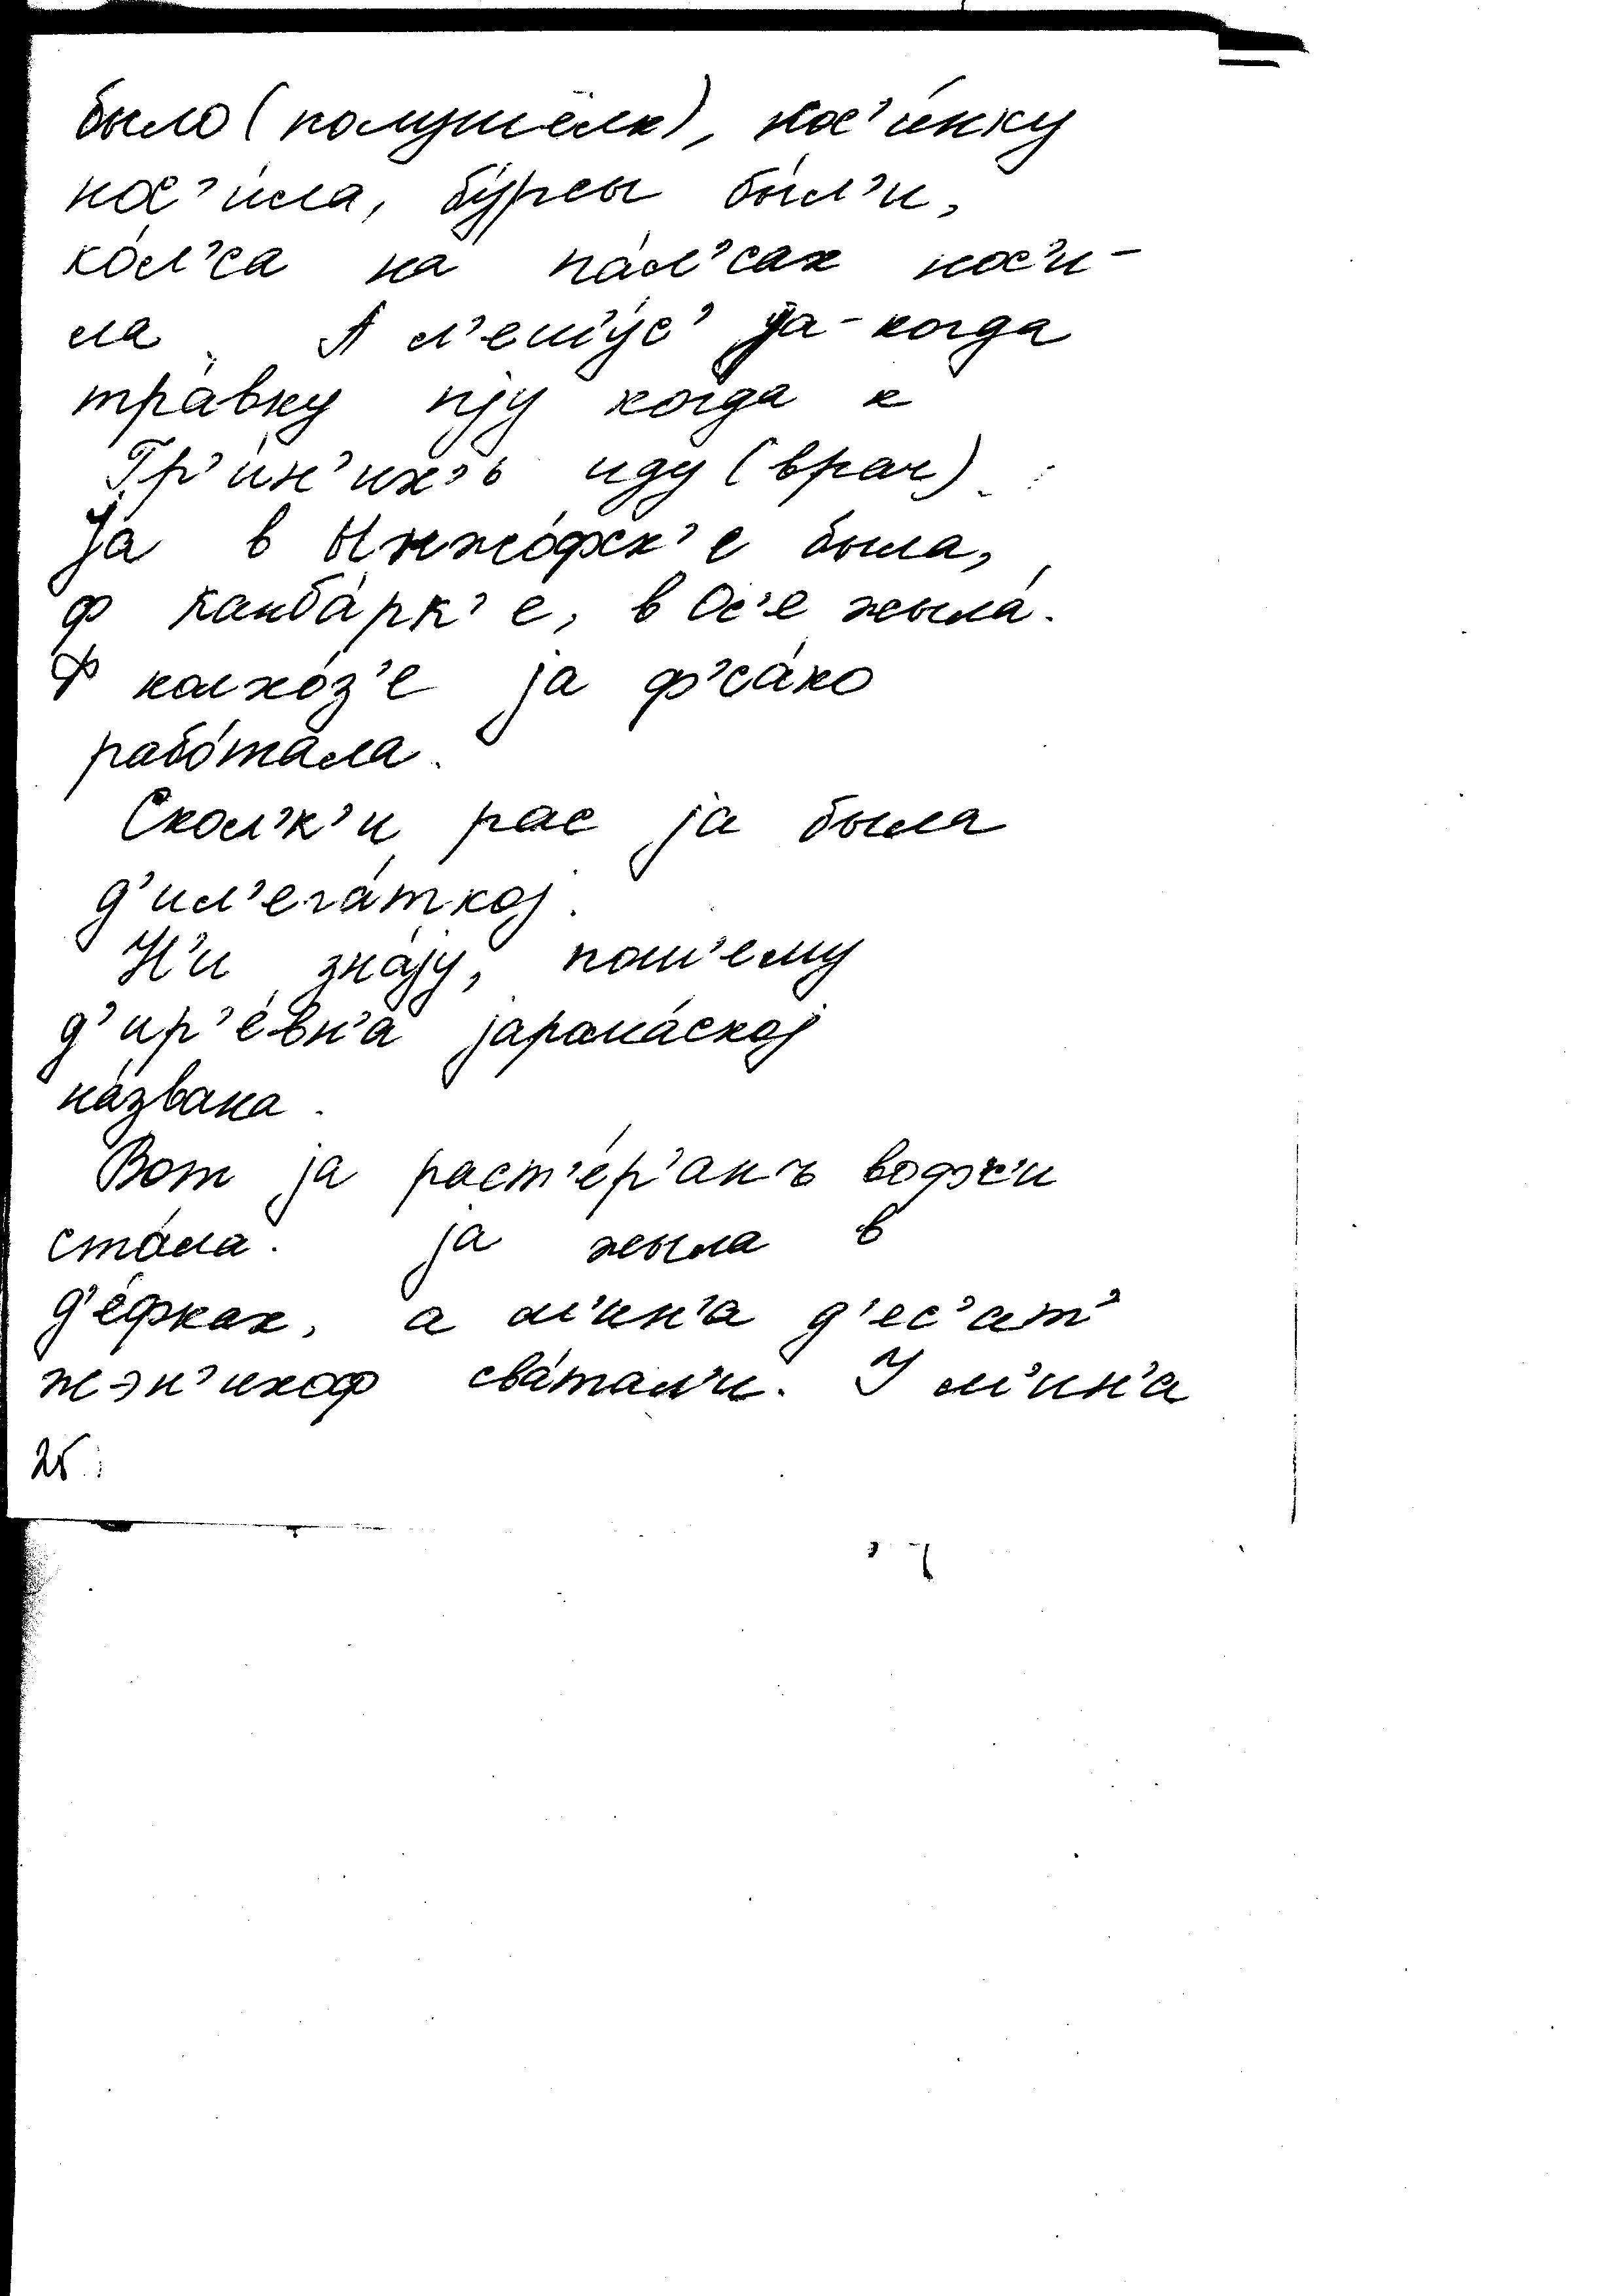 было (полушёлк), кос'и́нку
нос'и́ла, бу́рсы бы́л'и,
ко́л'са на па́л'сах нос'и-
ла. А л'еш'у́с' ја - когда
тра́вку пју когда к
Гр'и́н'ихъ иду (врач).
Ја в Ынжо́фск'е была,
ф Канба́рк'е, в Ос'е жыла́.
Ф колхо́з'е ја ф'са́ко
рабо́тала.
Скол'к'и рас ја была
д'ил'ега́ткој.
Н'и зна́ју, пош'ему
д'ир'е́вн'а јарама́ској
на́звана.
Вот ја раст'е́р'анъ вофк'и
ста́ла. ја жыла в
д'е́фках, а м'ин'а д'ес'ат'
жэн'ихоф сва́тал'и. У м'ин'а
25